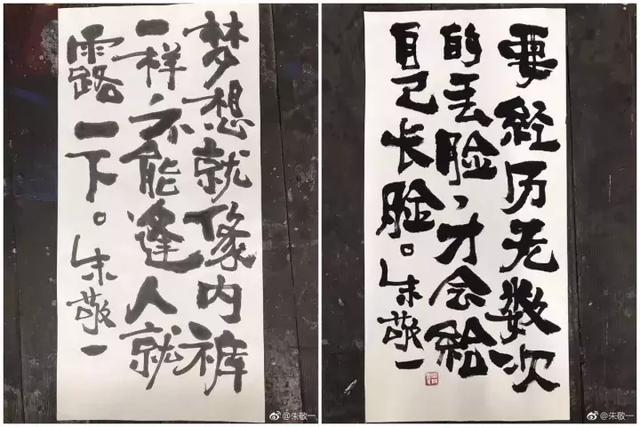 梦想就像内裤
一样,不能逢人就
露一下。朱敬一
@朱敬一
要经历无数次
的丢脸,才会给
自己长脸。朱敬一
@朱敬一